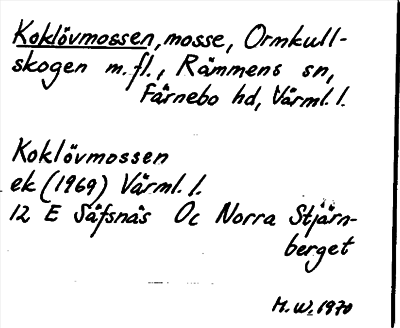 Koklövmossen, mosse, Ormkull-
skogen m.fl., Rämmens sn,
Färnebo hd, Värml. l.
Koklövmossen
ek (1969) Värml. l.
12 E Säfsnäs Oc Norra Stjärn-
berget
M.W. 1970